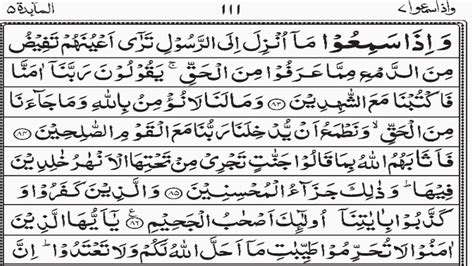 واذاسمعوا٧ ١١١ المآيدة٥
وَاِذَا سَمِعُوۡا مَاۤ اُنۡزِلَ اِلَى الرَّسُوۡلِ تَرٰٓى اَعۡيُنَهُمۡ تَفِيۡضُ
مِنَ الدَّمۡعِ مِمَّا عَرَفُوۡا مِنَ الۡحَـقِّ‌ۚ يَقُوۡلُوۡنَ رَبَّنَاۤ اٰمَنَّا
فَاكۡتُبۡنَا مَعَ الشّٰهِدِيۡنَ ﴿۸۳﴾ وَمَا لَـنَا لَا نُؤۡمِنُ بِاللّٰهِ وَمَا جَآءَنَا
مِنَ الۡحَـقِّۙ وَنَطۡمَعُ اَنۡ يُّدۡخِلَـنَا رَبُّنَا مَعَ الۡقَوۡمِ الصّٰلِحِيۡنَ ﴿۸۴﴾
فَاَثَابَهُمُ اللّٰهُ بِمَا قَالُوۡا جَنّٰتٍ تَجۡرِىۡ مِنۡ تَحۡتِهَا الۡاَنۡهٰرُ خٰلِدِيۡنَ
فِيۡهَا‌ ؕ وَذٰ لِكَ جَزَآءُ الۡمُحۡسِنِيۡنَ ﴿۸۵﴾ وَالَّذِيۡنَ كَفَرُوۡا وَ
كَذَّبُوۡا بِاٰيٰتِنَاۤ اُولٰٓٮِٕكَ اَصۡحٰبُ الۡجَحِيۡمِ ﴿۸۶﴾ يٰۤاَيُّهَا الَّذِيۡنَ
اٰمَنُوۡا لَا تُحَرِّمُوۡا طَيِّبٰتِ مَاۤ اَحَلَّ اللّٰهُ لَـكُمۡ وَلَا تَعۡتَدُوۡا‌ ؕ اِنَّ